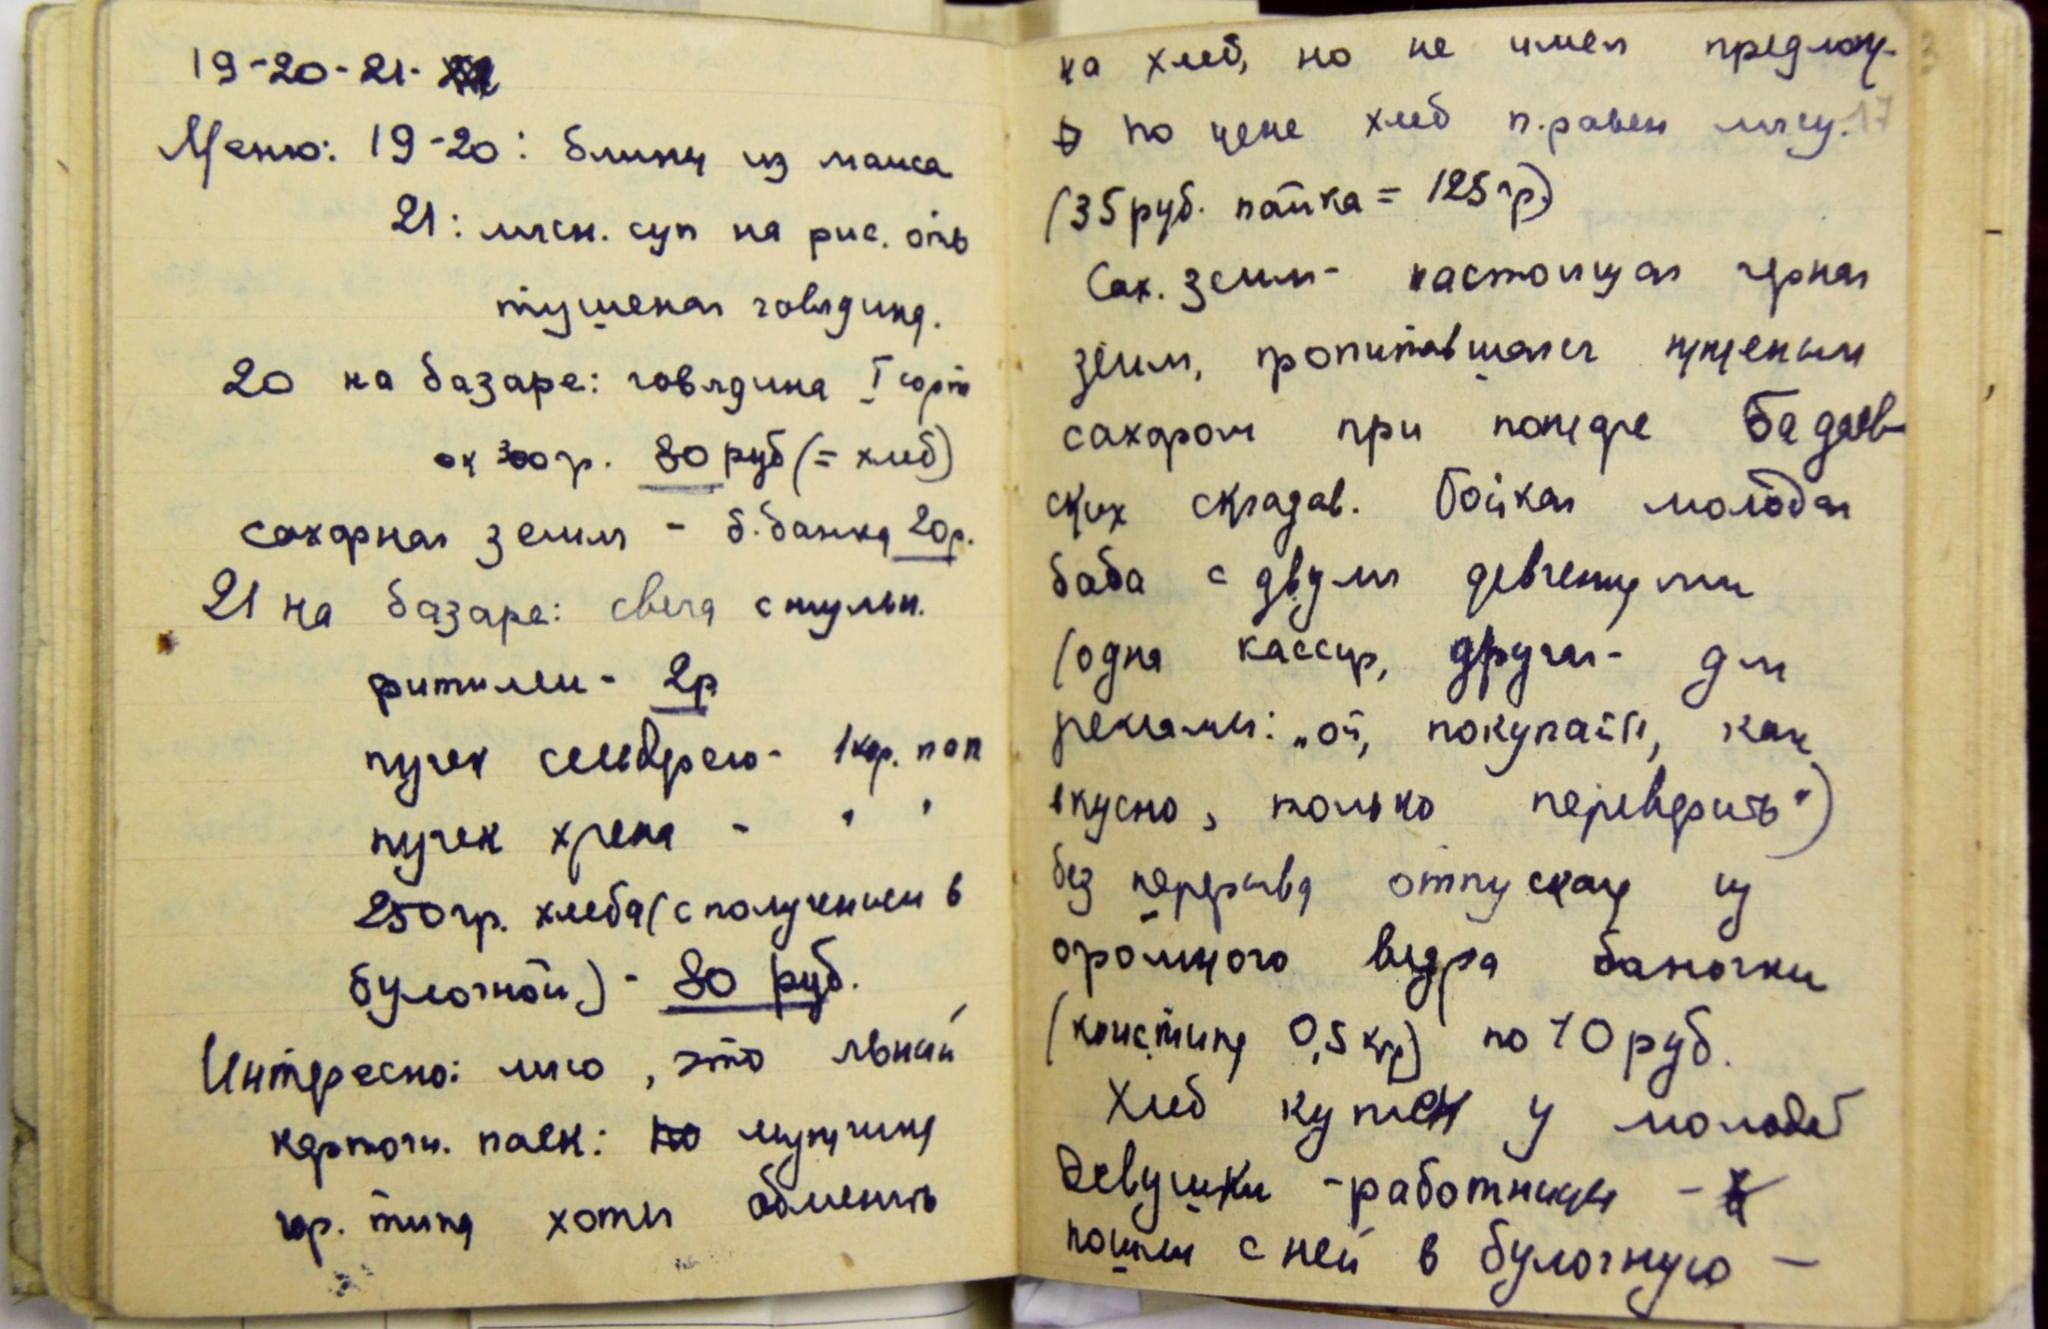 19-20-21-
Меню: 19-20: блины из маиса
21: мясн. суп на рис. отв
тушеная говядина.
20 на базаре: говядина I сорт
ок 300 гр. 80 руб (= хлеб)
сахарная земля - б. банка 20р.
21 на базаре: свеча с мульн.
фитилем - 2р
пучек сельдерею - 1 кор. пап
пучек хрена - " "
250 гр. хлеба (с получением в
булочной) - 80 руб.
Интересно: мясо, это явный
карточн. паек: мужчина
гор. типа хотел обменять
на хлеб, но не имел предлож.
по цене хлеб п. равен мясу. 17
(35 руб. пайка = 125 гр.)
Сах. земля - настоящая черная
земля, пропитавшаяся жженым
сахаром при пожаре Бадаев-
ских складов. Бойкая молодая
баба с двумя девченками
(одна кассир, другая - для
рекламы: „ой, покупайте, как
вкусно, только переварить")
без перерыва отпускает из
огромного ведра баночки
(констипа 0,5 кгр) по 10 руб.
Хлеб куплен у молодой
девушки - работницы -
пошли с ней в булочную -